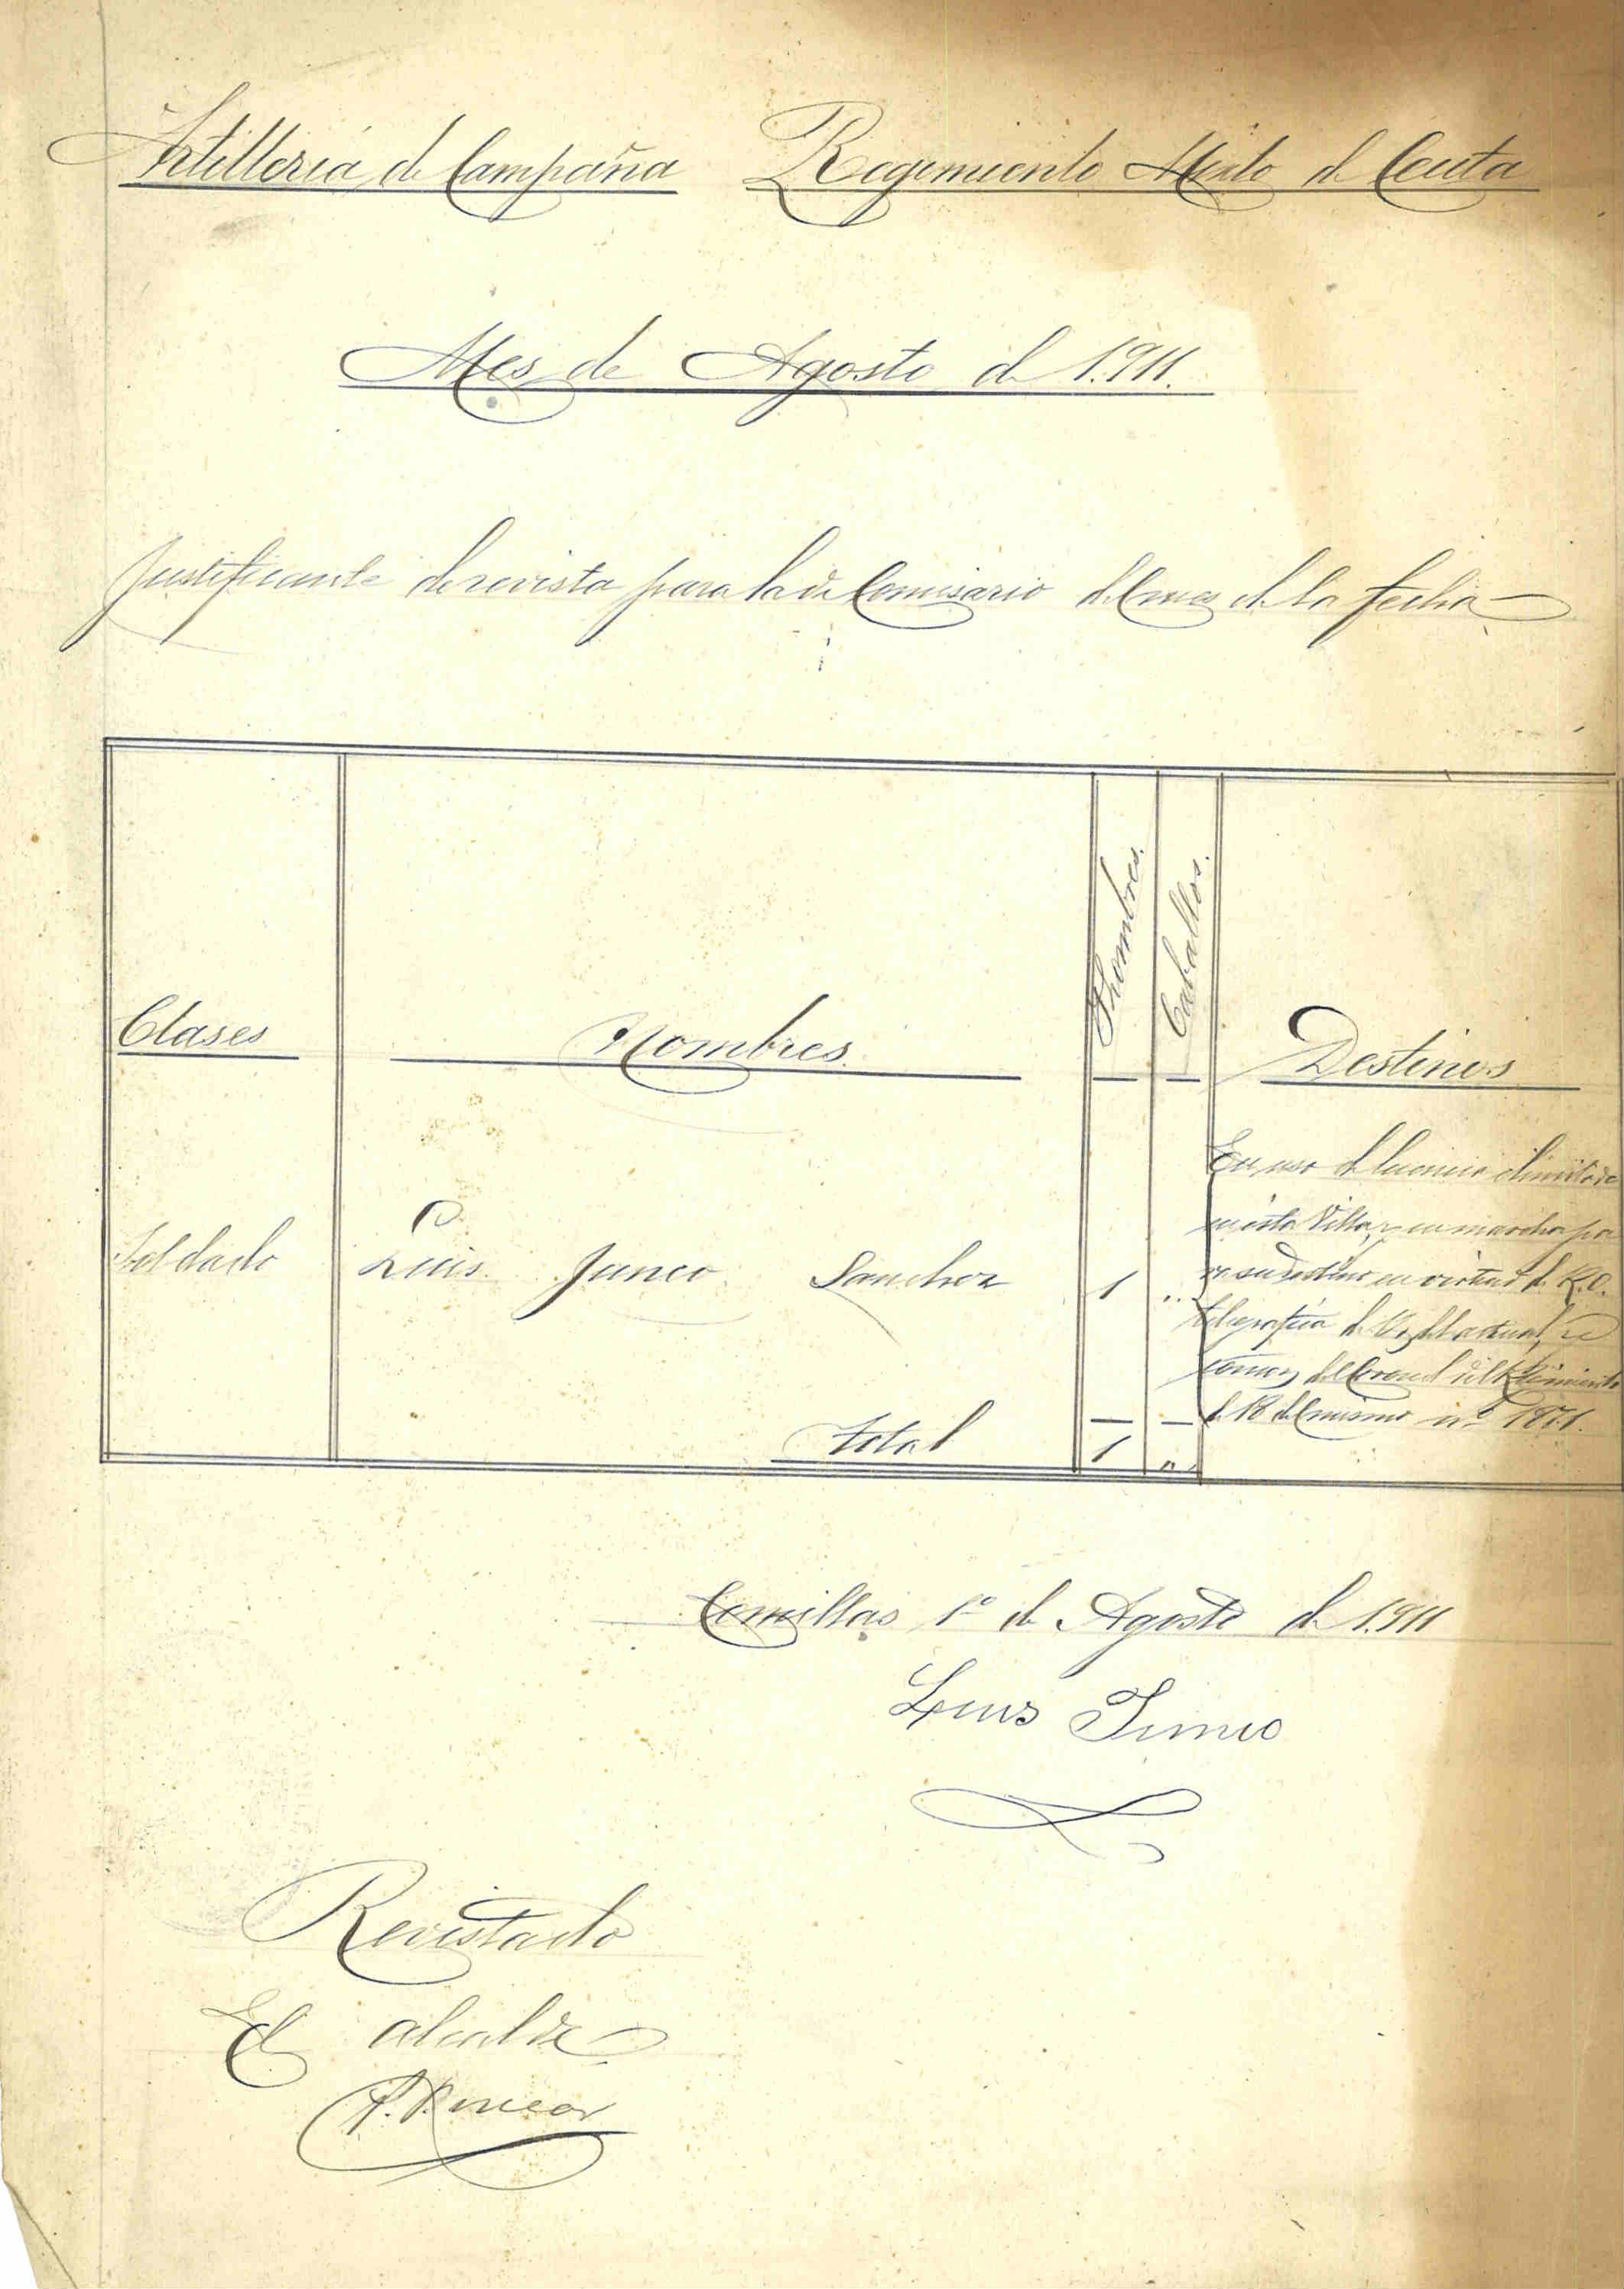 Artilleria de Campaña Regimiento Mixto de Ceuta
Mes de Agosto de 1.911.
Justificante de revista para la de Comisario del mes de la fecha
Clases Nombres. Hombres. Caballos. Destinos
En uso de licencia ilimitada
en esta Villa, y en marcha pa
Soldado Luis Junco Sanchez 1 " ra su destino en virtud de R.O.
telegrafica de del actual,
del Coronel del
de 18 del mismo nº 1871.
Total 1 "
Comillas 1º de Agosto de 1.911
Luis Junco
Revistado
El alcalde